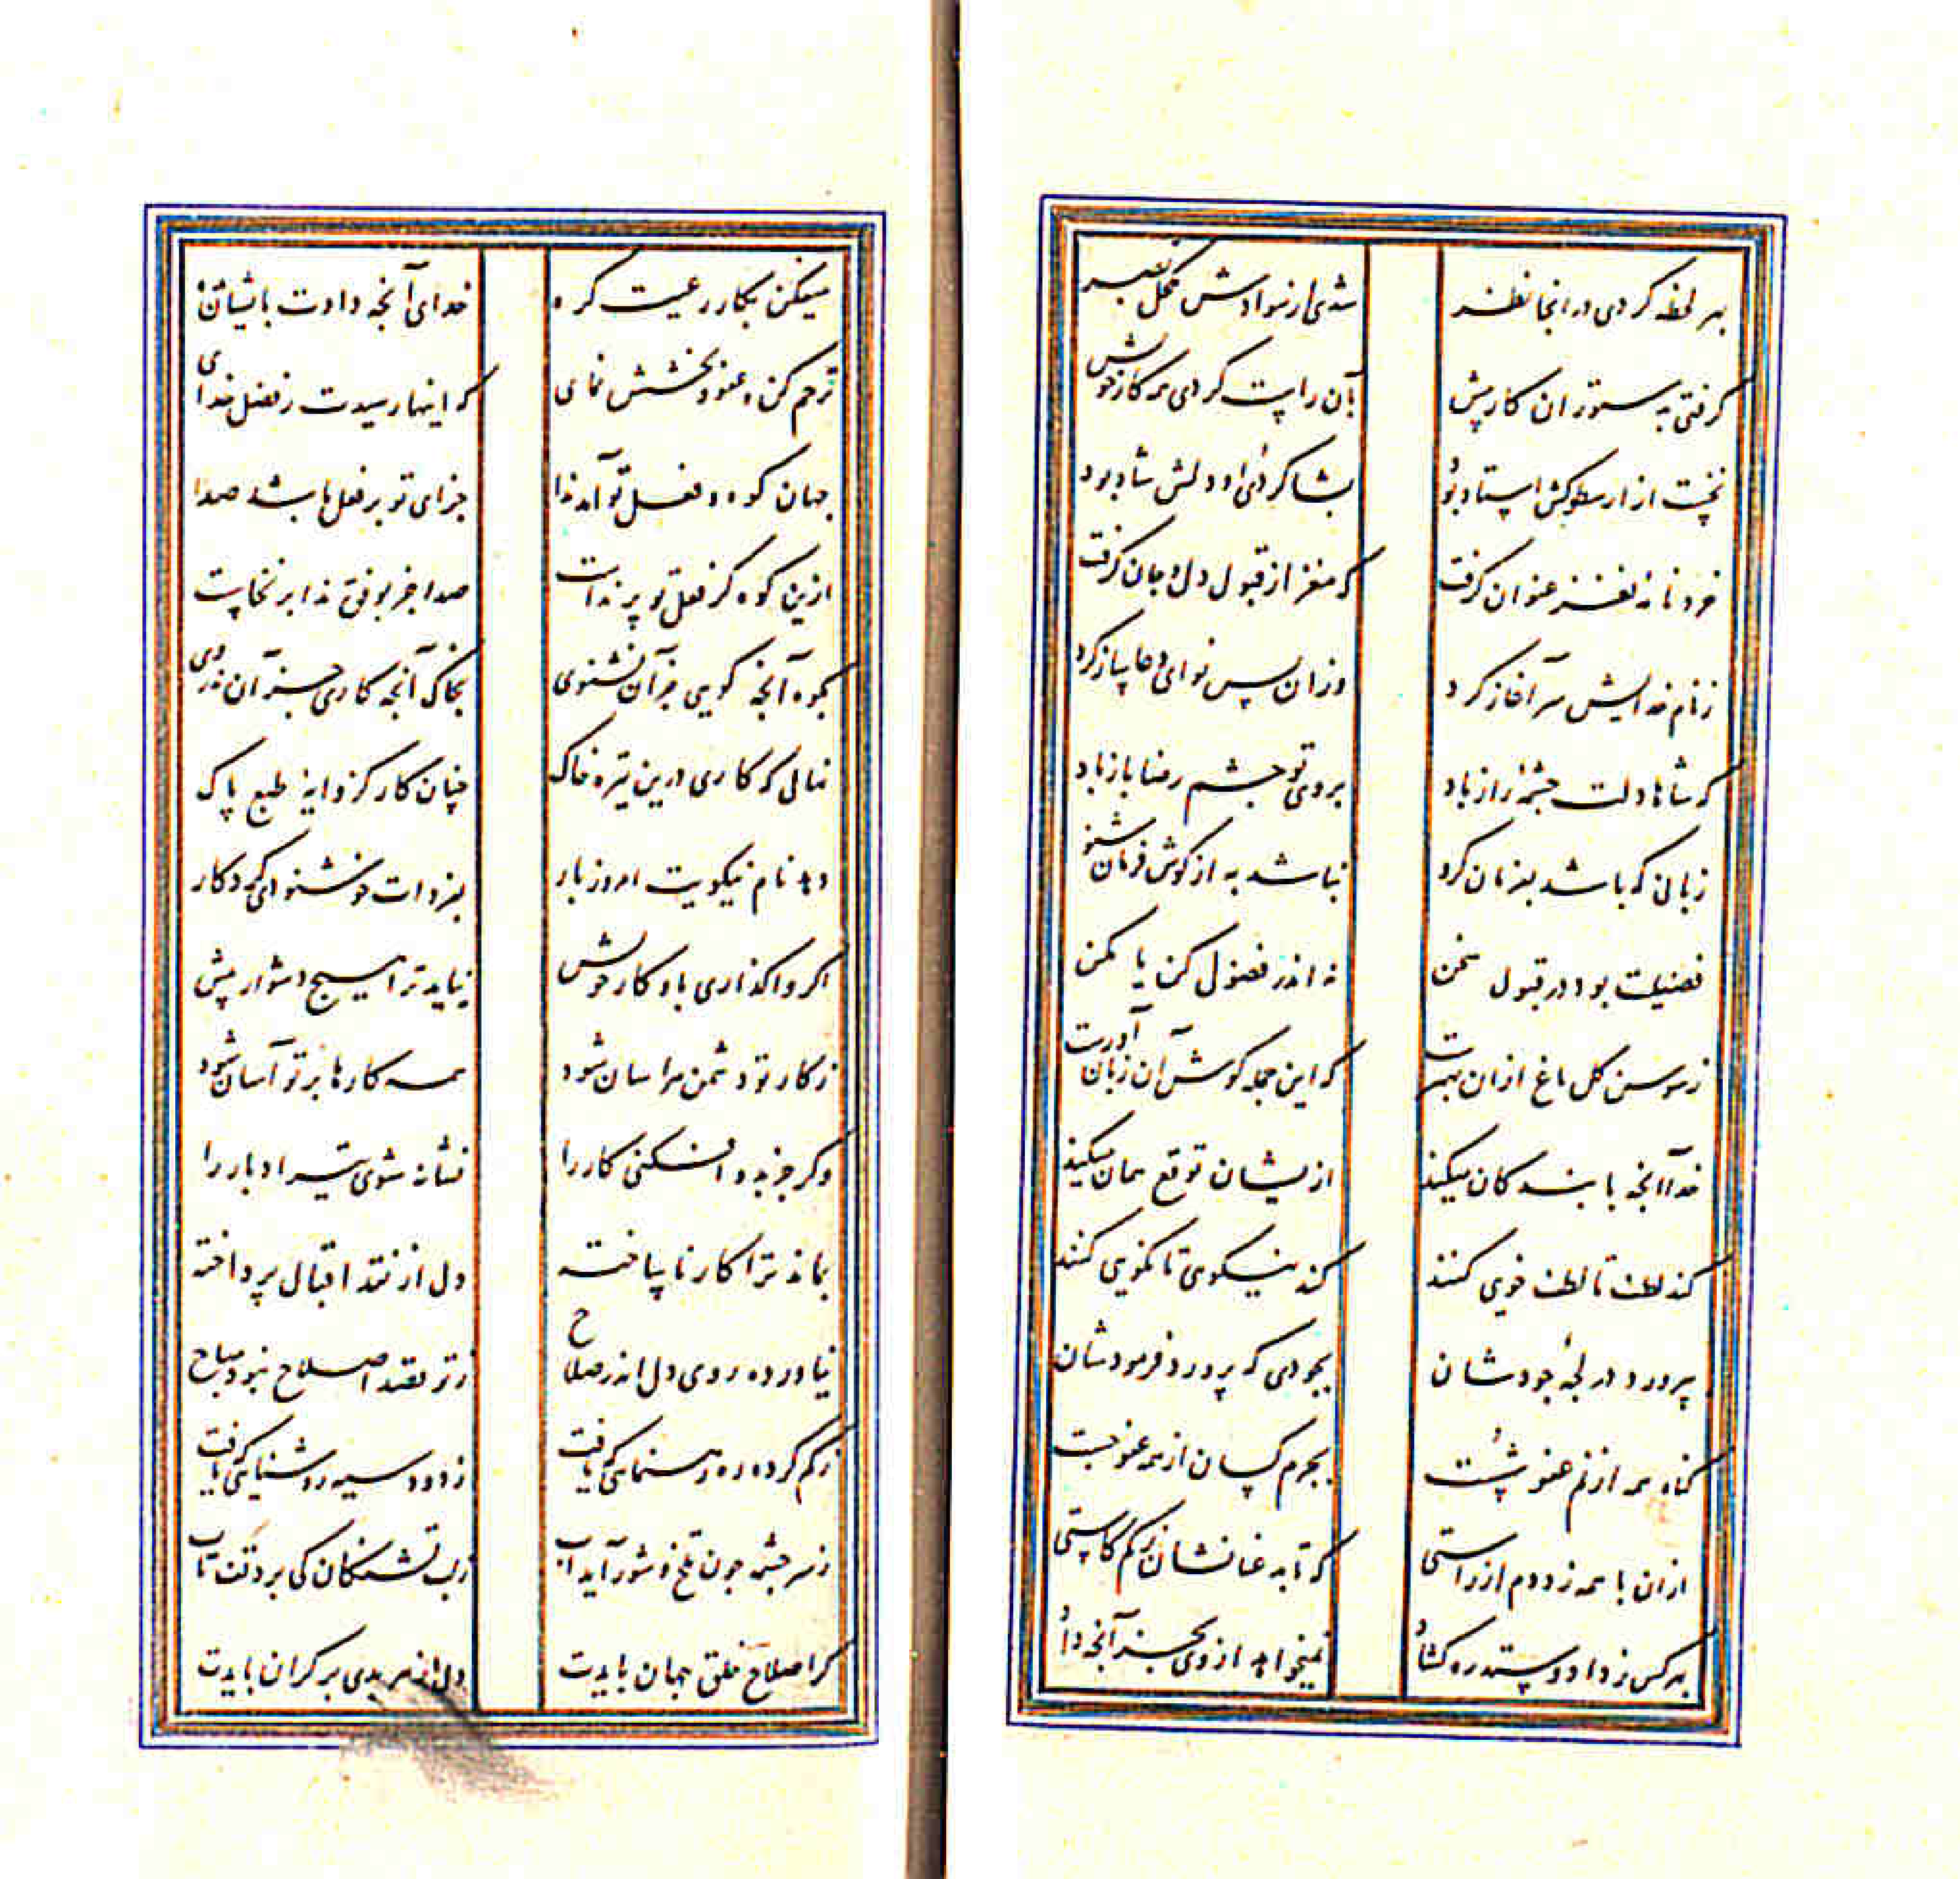 بهر لحظه کردی در انجا نظر
شدی از سوادش مکحل بصر
گرفتی به دستور آن کار پیش
بآن راست کردی همه کار خویش
نخست از ارسطو کش استاد بود
بشاکردی او دلش شاد بود
خردنامه نغز عنوان گرفت
که مغز از قبول دل و جان گرفت
ز نام خدایش سرآغاز کرد
وزان پس نوای دعا ساز کرد
که شاها دلت چشمه راز باد
بروی تو چشم رضا باز باد
زبانی که باشد بفرمان گرو
نباشد به از گوش فرمان شنو
فضیلت بود در قبول سخن
نه اندر فضولی کن یا مکن
ز سوسن گل باغ ازان بهترست
که این جمله گوش آن زبان آورست
خدا آنچه با بندگان میکند
ازیشان توقع همان میکند
کند لطف تا لطف خویی کنند
کند نیکوی تا نکویی کنند
بپرورد در لجه جودشان
بجودی که پرورد فرمودشان
گناه همه از نم عفو شست
بجرم کسان از همه عفو جست
ازان با همه زد دم از راستی
که تابد عنانشان ز کم کاستی
بهر کس ز داد و ستد ره گشاد
نمیخواهد از وی بجز آنچه داد
میفکن بکار رعیت گره
خدای آنچه دادت بایشان بده
ترحم کن و عفو و بخشش نمای
که اینها رسیدت ز فضل خدای
جهان کوه و فعل تو آمد ندا
جزای تو بر فعل باشد صدا
ازین کوه کز فعل تو پر نداست
صدا جز بوفق ندا بر نخاست
بکوه آنچه گویی جز آن نشنوی
بخاک آنچه کاری جز آن ندروی
نهالی که کاری درین تیره خاک
چنان کار کز دانه طبع پاک
دهد نام نیکویت امروز بار
بفردات خوشنودی کردگار
اگر واگذاری باو کار خویش
نیاید ترا هیچ دشوار پیش
ز کار تو دشمن هراسان شود
همه کارها بر تو آسان شود
وگر جز بدو افکنی کار را
نشانه شوی تیر ادبار را
بماند ترا کار ناساخته
دل از نقد اقبال پرداخته
نیاورده روی دل اندر صلاح
ز تو قصد اصلاح نبود مباح
ز گم کرده ره رهنمایی که یافت
ز دود سیه روشنایی که یافت
ز سر چشمه چون تلخ و شور آید آب
ز لب تشنگان کی برد تف و تاب
گر اصلاح خلق جهان بایدت
دل از هر بدی بر کران بایدت